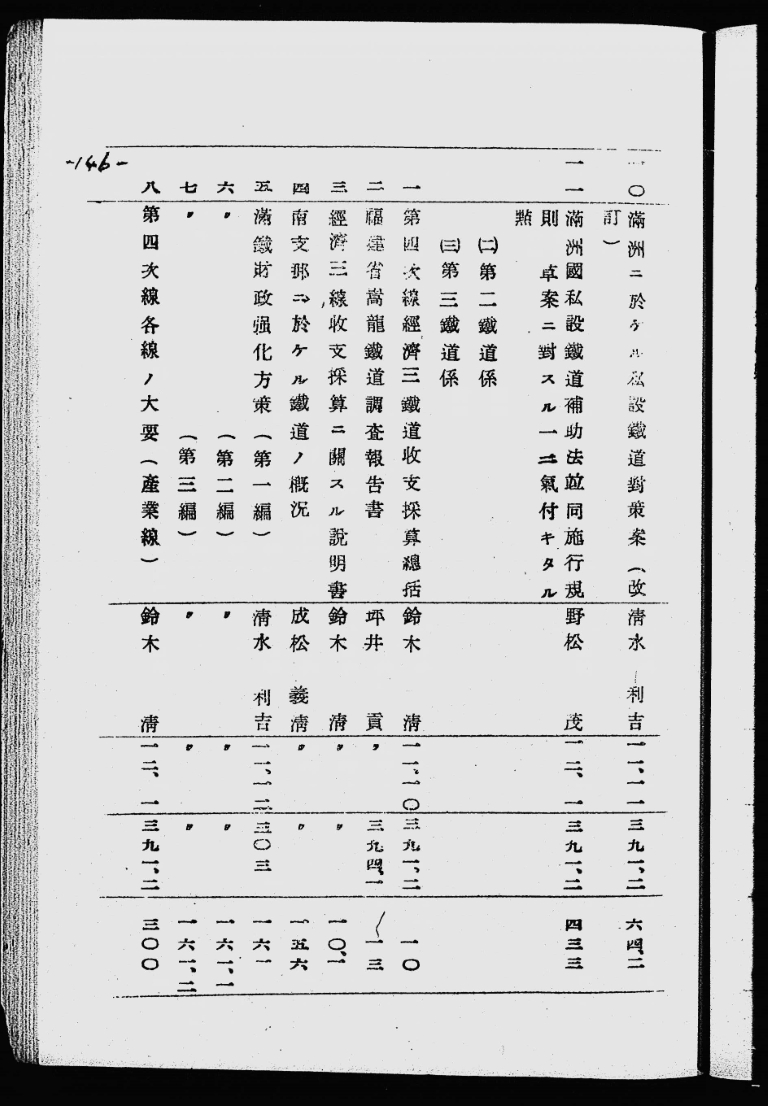 一〇 滿洲ニ於ケル私設鐵道對策案(改 清水 利吉 一一、一一 三九一、二 六四、二
訂)
一一 滿洲國私設鐵道補助法竝同施行規 野松 茂 一二、一 三九一、二 四三三
則 草案ニ對スル一二氣付キタル
點
㈡第二鐵道係
㈢第三鐵道係
一 第四次線經濟三鐵道收支採算總括 鈴木 淸 一一、一〇 三九一、二 一〇
二 福建省嵩龍鐵道調査報告書 坪井 貢 〃 三九四、一 一三
三 經濟三線收支採算ニ關スル說明書 鈴木 淸 〃 〃 一〇、一
四 南支那ニ於ケル鐵道ノ槪況 成松 義淸 〃 〃 一五六
五 滿鐵財政强化方策(第一編) 淸水 利吉 一一、一二 三〇三 一六一
六 〃 (第二編) 〃 〃 〃 一六一、一
七 〃 (第三編) 〃 〃 〃 一六一、二
八 第四次線各線ノ大要(產業線) 鈴木 淸 一二、一 三九一、二 三〇〇
-146-